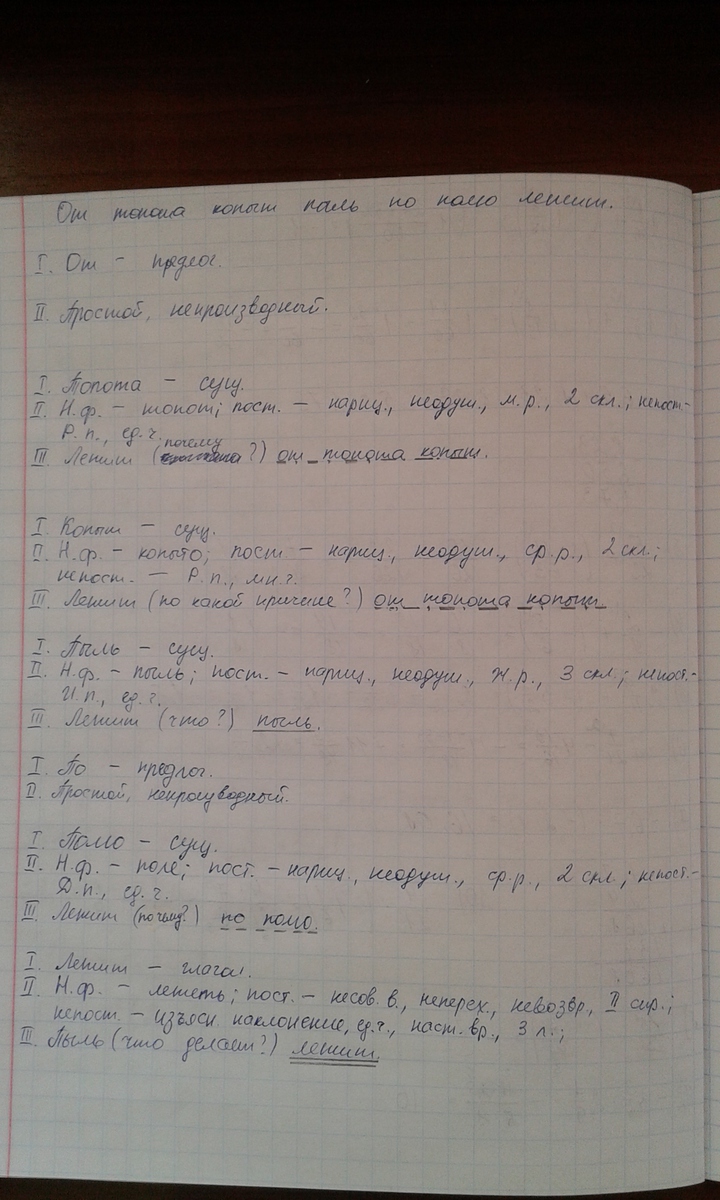 От топота копыт пыль по полю летит.
I. От - предлог.
II. Простой, непроизводный.
I. Топота - сущ.
II. Н.ф. - топот; пост. - нариц., неодуш., м.р., 2 скл.; непост.-
Р.п., ед.ч.
почему
III. Летит ( ?) от топота копыт.
I. Копыт - сущ.
II. Н.ф. - копыто; пост - нариц., неодуш., ср.р., 2 скл.;
непост. - Р.п., мн.ч.
III. Летит (по какой причине?) от топота копыт.
I. Пыль - сущ.
II. Н.ф. - пыль; пост. - нариц., неодуш., ж.р., 3 скл.; непост.-
И.п., ед.ч.
III. Летит (что?) пыль.
I. По - предлог.
II. Простой, непроизводный.
I. Полю - сущ.
II. Н.ф. - поле; пост. - нариц., неодуш., ср.р., 2 скл.; непост.-
Д.п., ед.ч.
III. Летит (по чему?) по полю.
I. Летит - глагол.
II. Н.ф. - лететь; пост. - несов.в., неперех., невозвр., II спр.;
непост. - изъясн. наклонение, ед.ч., наст.вр., 3 л.;
III. Пыль (что делает?) летит.